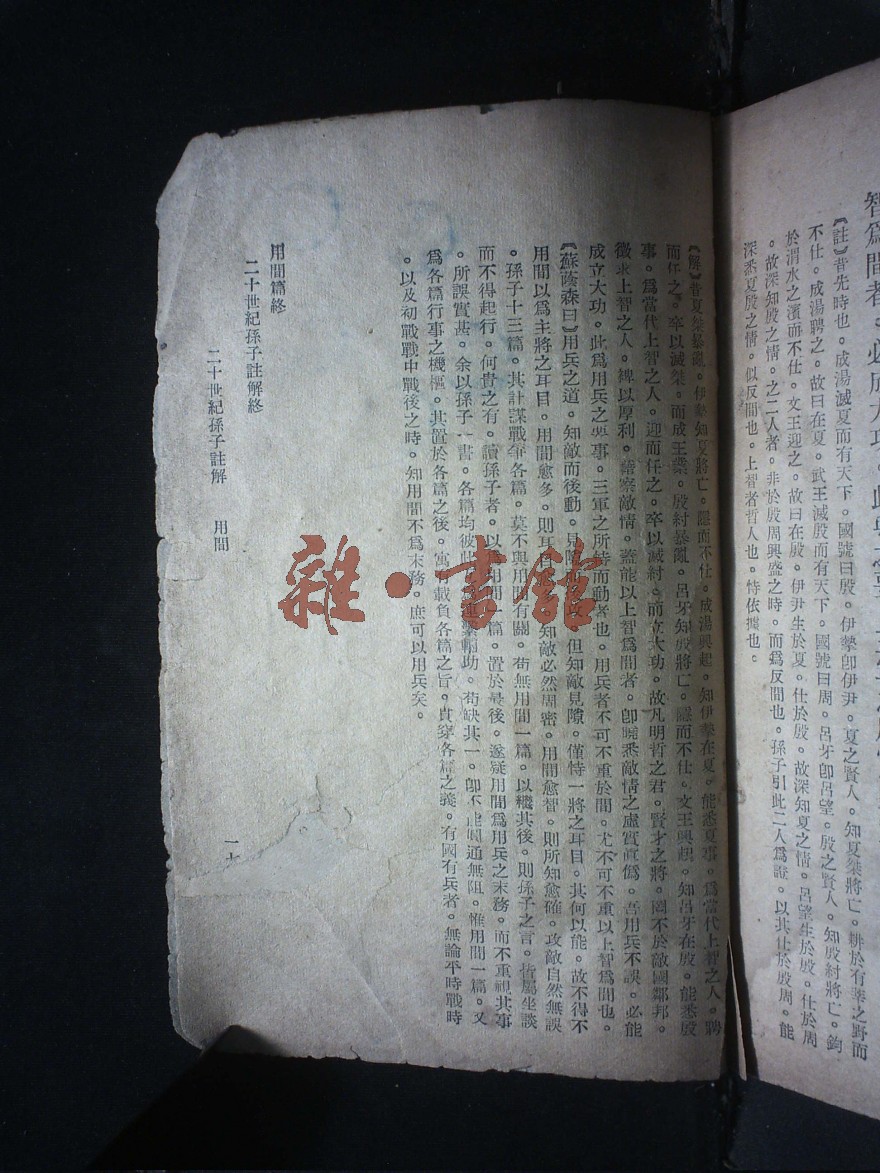 智爲間者。必成大功。此兵之要。三軍之所
〖註〗昔先時也。成湯滅夏而有天下。國號曰殷。伊摯卽伊尹。夏之賢人。知夏桀將亡。耕於有莘之野而
不仕。成湯聘之。故曰在夏。武王滅殷而有天下。國號曰周。呂牙卽呂望。殷之賢人。知殷紂將亡。釣
於渭水之濱而不仕。文王迎之。故曰在殷。伊尹生於夏。仕於殷。故深知夏之情。呂望生於殷。仕於周
。故深知殷之情。之二人者。非於殷周興盛之時。而爲反間也。孫子引此二人爲證。以其仕於殷周。能
深悉夏殷之情。似反間也。上智者哲人也。恃依據也。
〖解〗昔夏桀暴亂。伊摯知夏將亡。隱而不仕。成湯興起。知伊摯在夏。能悉夏事。爲當代上智之人。聘
而任之。卒以滅桀。而成王業。殷紂暴亂。呂牙知殷將亡。隱而不仕。文王興起。知呂牙在殷。能悉殷
事。爲當代上智之人。迎而任之。卒以滅紂。而立大功。故凡明哲之君。賢才之將。罔不於敵國鄰邦。
徵求上智之人。縻以厚利。藉察敵情。蓋能以上智爲間者。卽能悉敵情之虛實眞僞。吾用兵不誤。必能
成立大功。此爲用兵之要事。三軍之所恃而動者也。用兵者不可不重於間。尤不可不重以上智爲間也。
〖蘇蔭森曰〗用兵之道。知敵而後動。見隙 但知敵見隙。僅恃一將之耳目。其何以能。故不得不
用間以爲主將之耳目。用間愈多。則耳 知敵必然周密。用間愈智。則所知愈確。攻敵自然無誤
。孫子十三篇。其計謀戰爭各篇。莫不與用間有關。苟無用間一篇。以繼其後。則孫子之言。皆屬坐談
而不得起行。何貴之有。讀孫子者。以 用間一篇。置於最後。遂疑用間爲用兵之末務。而不重視其事
。所誤實甚。余以孫子一書。各篇均彼此 連繫輔助。苟缺其一。卽不能圓通無阻。惟用間一篇。又
爲各篇行事之機樞。其置於各篇之後。寓 載負各篇之旨。貫穿各篇之義。有國有兵者。無論平時戰時
。以及初戰戰中戰後之時。知用間不爲末務。庶可以用兵矣。
用間篇終
二十世紀孫子註解終
二十世紀孫子註解 用間 一七
雜·書館